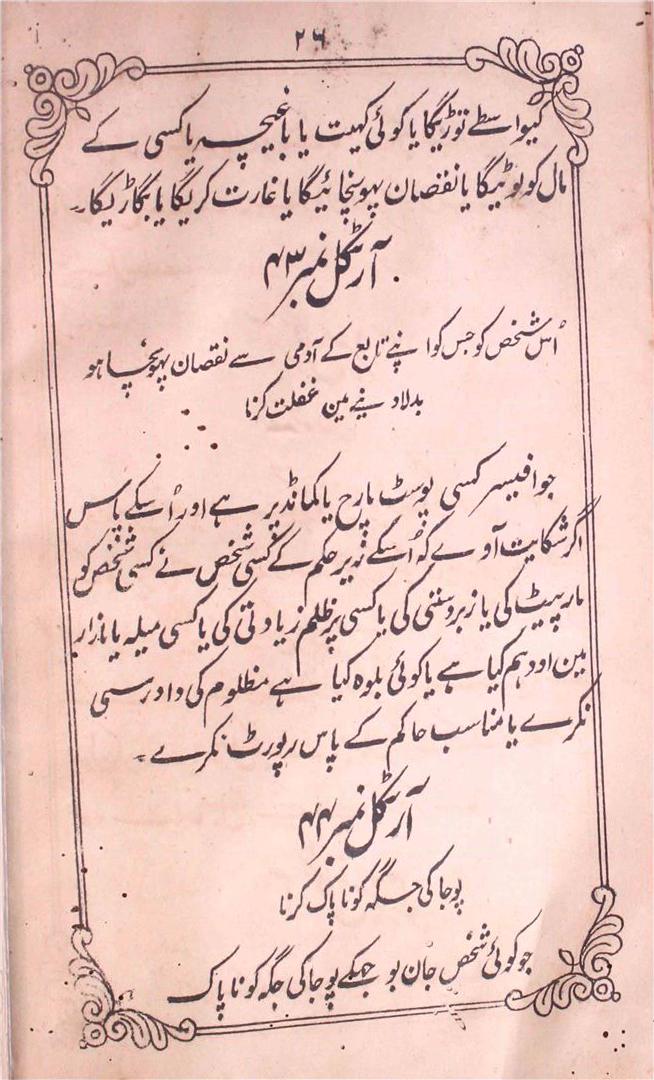 ۲۶
کیواسطے توڑیگا یا کوئی کھیت یا باغیچہ یا کسی کے
مال کو لوٹیگا یا نقصان پہونچائیگا یا غارت کریگا یا بگاڑیگا۔
آرٹکل نمبر ۴۳
اُس شخص کو جس کو اپنے تابع کے آدمی سے نقصان پہونچا ہو
بدلا دینے مین غفلت کرنا
جو افیسر کسی پوسٹ یا رح یا کمانڈیر ہے اور اُسکے پاس
اگر شکایت آوے کہ اُسکے زیر حکم کے کسی شخص نے کسی شخص کو
مار پیٹ کی یا زبردستی کی یا کسی پر ظلم زیادتی کی یا کسی میلہ یا بازار
مین اودہم کیا ہے یا کوئی بلوہ کیا ہے مظلوم کی دادرسی
نکرے یا مناسب حاکم کے پاس رپورٹ نکرے۔
آرٹکل نمبر ۴۴
پوجا کی جگہ کو ناپاک کرنا
جو کوئی شخص جان بوجھکے پوجا کی جگہ کو ناپاک